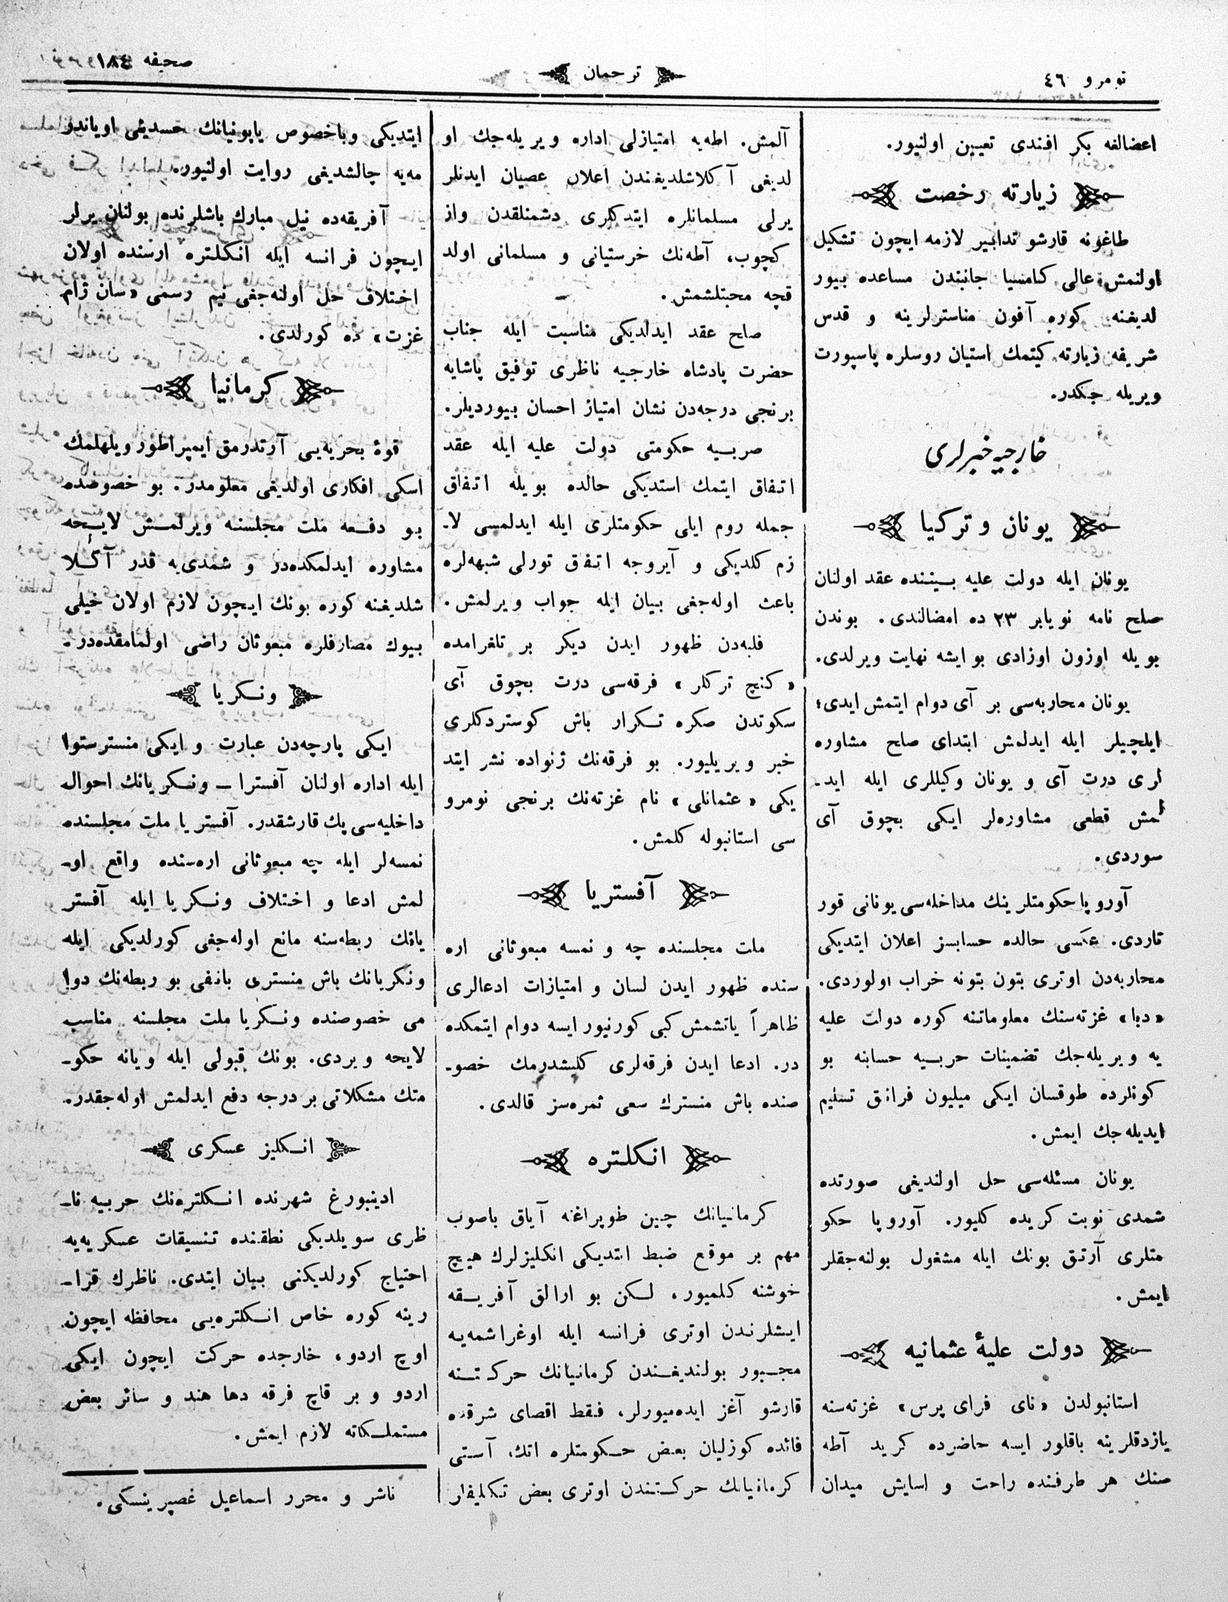 نومرو ٤٦
ترجمان
صحیفه ١٨٤
اعضالغه بكر افندی تعیین اولنیور.
زیارته رخصت
طاغونه قارشو تدابیر لازمه ایچون تشكیل
اولنمش عالی كامسیا جانبندن مساعده بیور
لدیغنه كوره آفون مناسترلرینه و قدس
شریفه زیارته كیتمك استیان روسلره پاسپورت
ویریله جكدر.
خارجیه خبرلری
یونان و تركیا
یونان ایله دولت علیه بیننده عقد اولنان
صلح نامه نویابر ٢٣ ده امضالندی. بوندن
بویله اوزون اوزادی بو ایشه نهایت ویرلدی.
یونان محاربه‌سی بر آی دوام ایتمش ایدی؛
ایلچیلر ایله ایدلمش ابتدای صلح مشاوره
لری درت آی و یونان وكیللری ایله اید۔
لمش قطعی مشاوره‌لر ایكی بچوق آی
سوردی.
آوروپا حكومتلرینك مداخله‌سی یونانی قور
تاردی. عكسی حالده حسابسز اعلان ایتدیكی
محاربه‌دن اوتری بتون بتونه خراب اولوردی.
«دبا» غزته‌سنك معلوماتنه كوره دولت علیه
یه ویریله‌جك تضمینات حربیه حسابنه بو
كونلرده طوقسان ایكی میلیون فرانق تسلیم
ایدیله‌جك ایمش.
یونان مسئله‌سی حل اولندیغی صورتده
شمدی نوبت كریده كلیور. آوروپا حكو
متلری آرتق بونك ایله مشغول بولنه‌جقلر
ایمش.
دولت علیۀ عثمانیه
استانبولدن «نای فرای پرس» غزته‌سنه
یازدقلرینه باقلور ایسه حاضرده كرید آطه
سنك هر طرفنده راحت و اسایش میدان
آلمش. اطه‌یه امتیازلی اداره ویریله‌جك او
لدیغی آكلاشلدیغندن اعلان عصیان ایدنلر
یرلی مسلمانلره ایتدكلری دشمنلقدن واز
كچوب، آطه‌نك خرستیانی و مسلمانی اولد
قچه محبتلشمش.
صلح عقد ایدلدیكی مناسبت ایله جناب
حضرت پادشاه خارجیه ناظری توفیق پاشایه
برنجی درجه‌دن نشان امتیاز احسان بیوردیلر.
صربیه حكومتی دولت علیه ایله عقد
اتفاق ایتمك استدیكی حالده بویله اتفاق
جمله روم ایلی حكومتلری ایله ایدلمسی لا۔
زم كلدیكی و آیروجه اتفاق تورلی شبهه‌لره
باعث اوله‌جغی بیان ایله جواب ویرلمش.
فلبه‌دن ظهور ایدن دیكر بر تلغرامده
«كنج تركلر» فرقه‌سی درت بچوق آی
سكوتدن صكره تكرار باش كوستردكلری
خبر ویریلیور. بو فرقه‌نك ژنواده نشر ایتد
یكی «عثمانلی» نام غزته‌نك برنجی نومرو
سی استانبوله كلمش.
آفستریا
ملت مجلسنده چه و نمسه مبعوثانی اره
سنده ظهور ایدن لسان و امتیازات ادعالری
ظاهراً یاتشمش كبی كورنیور ایسه دوام ایتمكده
در. ادعا ایدن فرقه‌لری كلیشدرمك خصو۔
صنده باش منسترك سعی ثمره‌سز قالدی.
انكلتره
كرمانیانك چین طوپراغنه آیاق باصوب
مهم بر موقع ضبط ایتدیكی انكلیزلرك هیچ
خوشنه كلمیور، لكن بو ارالق آفریقه
ایشلرندن اوتری فرانسه ایله اوغراشمه‌یه
مجبور بولندیغندن كرمانیانك حركتنه
قارشو آغز ایده‌میورلر. فقط اقصای شرقده
فائده كوزلیان بعض حكومتلره اتك آستی
كرمانیانك حركتندن اوتری بعض تكلیفلر
ایتدیكی وباخصوص یاپونیانك حسدینی اویاندر
مه‌یه چالشدیغی روایت اولنیور.
آفریقه‌ده نیل مبارك باشلرنده بولنان یرلر
ایچون فرانسه ایله انكلتره ارسنده اولان
اختلاف حل اوله‌جغی نیم رسمی «سان ژام
غزت» ده كورلدی.
كرمانیا
قوۀ بحریه‌یی آرتدرمق ایمپراطور ویلهلمك
اسكی افكاری اولدیغی معلومدر. بو خصوصده
بو دفعه ملت مجلسنه ویرلمش لایحه
مشاوره ایدلمكده‌در و شمدی‌یه قدر آكلا
شلدیغنه كوره بونك ایچون لازم اولان خیلی
بیوك مصارفلره مبعوثان راضی اولمامقده‌در۔
ونكریا
ایكی پارچه‌دن عبارت و ایكی منسترستوا
ایله اداره اولنان آفسترا ـ ونكریانك احوال
داخلیه‌سی پك قارشقدر. آفستریا ملت مجلسنده
نمسه‌لر ایله چه مبعوثانی اره‌سنده واقع او۔
لمش ادعا و اختلاف ونكریا ایله آفستر
یانك ربطه‌سنه مانع اوله‌جغی كورلدیكی ایله
ونكریانك باش منستری بانفی بو ربطه‌نك دوا
می خصوصنده ونكریا ملت مجلسنه مناسب
لایحه ویردی. بونك قبولی ایله ویانه حكو۔
متك مشكلاتی بر درجه دفع ایدلمش اوله‌جقدر.
انكلیز عسكری
ادینبورغ شهرنده انكلتره‌نك حربیه نا۔
ظری سویلدیكی نطقنده تنسیقات عسكریه‌یه
احتیاج كورلدیكنی بیان ایتدی. ناظرك قرا۔
رینه كوره خاص انكلتره‌یی محافظه ایچون
اوچ اردو، خارجده حركت ایچون ایكی
اردو و بر قاچ فرقه دها هند و سائر بعض
مستملكاته لازم ایمش.
ناشر و محرر اسماعیل غصپرینسكی.